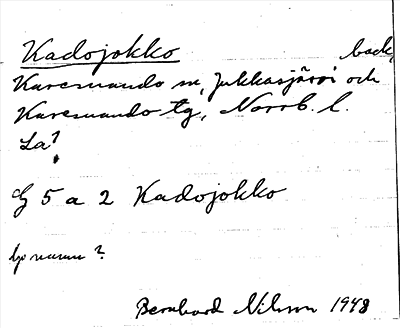 Kadojokko back,
Karesuando sn, Jukkasjärvi och
Karesuando tg, Norrb. l.
La?
G 5 a 2 Kadojokko
namn?
Bernhard Nilsson 1948